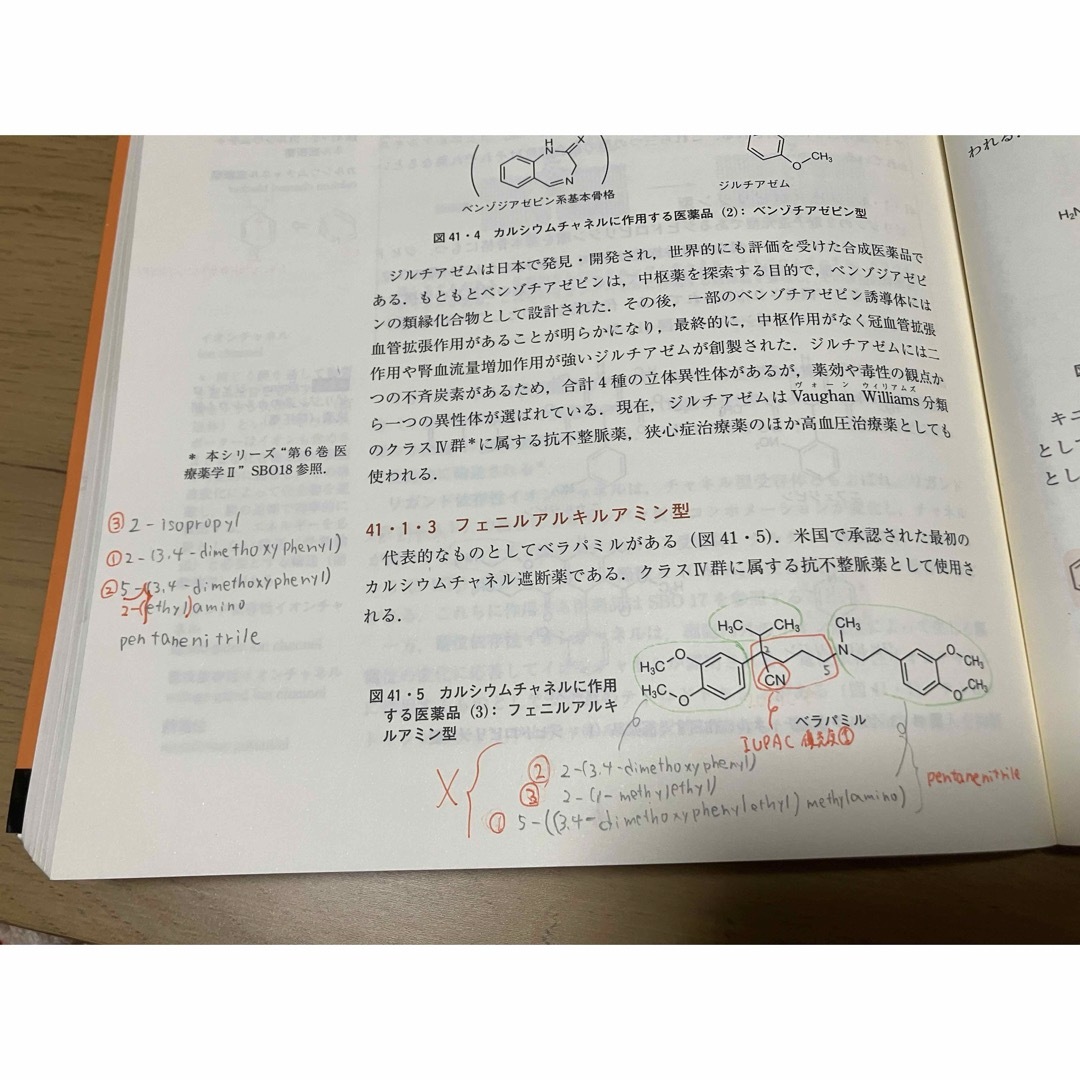 H
N
X
N
ベンゾジアゼピン系基本骨格
O
CH₃
ジルチアゼム
図 41・4 カルシウムチャネルに作用する医薬品 (2): ベンゾチアゼピン型
ジルチアゼムは日本で発見・開発され，世界的にも評価を受けた合成医薬品で
ある．もともとベンゾチアゼピンは，中枢薬を探索する目的で，ベンゾジアゼピ
ンの類縁化合物として設計された．その後，一部のベンゾチアゼピン誘導体には
血管拡張作用があることが明らかになり，最終的に，中枢作用がなく冠血管拡張
作用や腎血流量増加作用が強いジルチアゼムが創製された．ジルチアゼムには二
つの不斉炭素があるため，合計 4 種の立体異性体があるが，薬効や毒性の観点か
ヴォーン ウィリアムズ
ら一つの異性体が選ばれている．現在，ジルチアゼムは Vaughan Williams 分類
のクラスⅣ群*に属する抗不整脈薬，狭心症治療薬のほか高血圧治療薬としても
使われる．
* 本シリーズ“第 6 巻 医
療薬学Ⅱ” SBO18 参照．
41・1・3 フェニルアルキルアミン型
代表的なものとしてベラパミルがある（図 41・5）．米国で承認された最初の
カルシウムチャネル遮断薬である．クラスⅣ群に属する抗不整脈薬として使用さ
れる．
③ 2-isopropyl
① 2-(3.4-dimethoxyphenyl)
② 5-((3.4-dimethoxyphenyl)
2-(ethyl)amino
pentanenitrile
H₃C
CH₃
CH₃
H₃C
O
2
N
O
CH₃
H₃C
O
CN
5
O
CH₃
ベラパミル
図 41・5 カルシウムチャネルに作用
する医薬品 (3): フェニルアルキ
ルアミン型
IUPAC
X
② 2-(3.4-dimethoxyphenyl)
③ 2-(1-methylethyl)
① 5-((3.4-dimethoxyphenylethyl)methylamino)
pentanenitrile
われる．
H₂N
キニ
として
とし